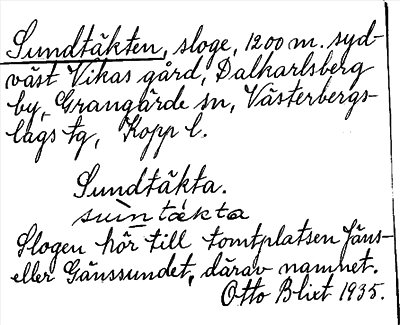 Sundtäkten, sloge, 1200 m. syd-
väst Vikas gård, Dalkarlsberg
by, Grangärde sn, Västerbergs-
lags tg, Kopp l.
Sundtäkta.
suǹ tákta
Slogen hör till tomtplatsen Jäns-
eller Gänssundet, därav namnet.
Otto Blixt 1935.